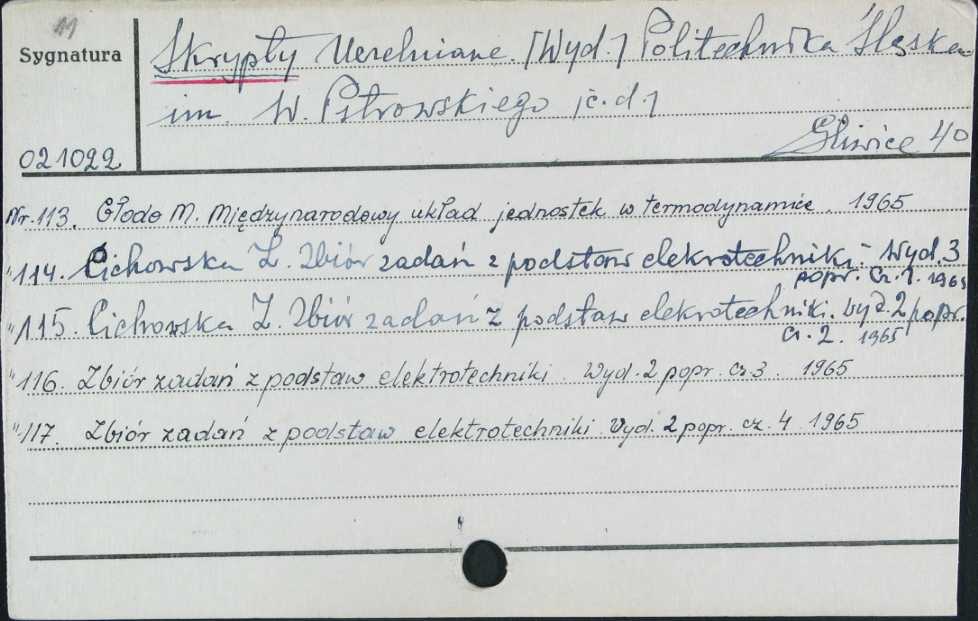 11
Sygnatura
Skrypty Uczelniane. [Wyd.] Politechnika Śląska
im. W. Pstrowskiego [c.d.]
021022
Gliwice 40
Nr. 113. Głodo M. Międzynarodowy układ jednostek w termodynamice. 1965
" 114. Cichowska Z. Zbiór zadań z podstaw elekrotechniki. Wyd. 3
popr. Cz. 1. 1965
" 115. Cichowska Z. Zbiór zadań z podstaw elekrotechniki. wyd. 2 popr.
Cz. 2. 1965
" 116. Zbiór zadań z podstaw elektrotechniki. Wyd. 2 popr. cz 3. 1965
" 117. Zbiór zadań z podstaw elektrotechniki Wyd. 2 popr. cz. 4 1965